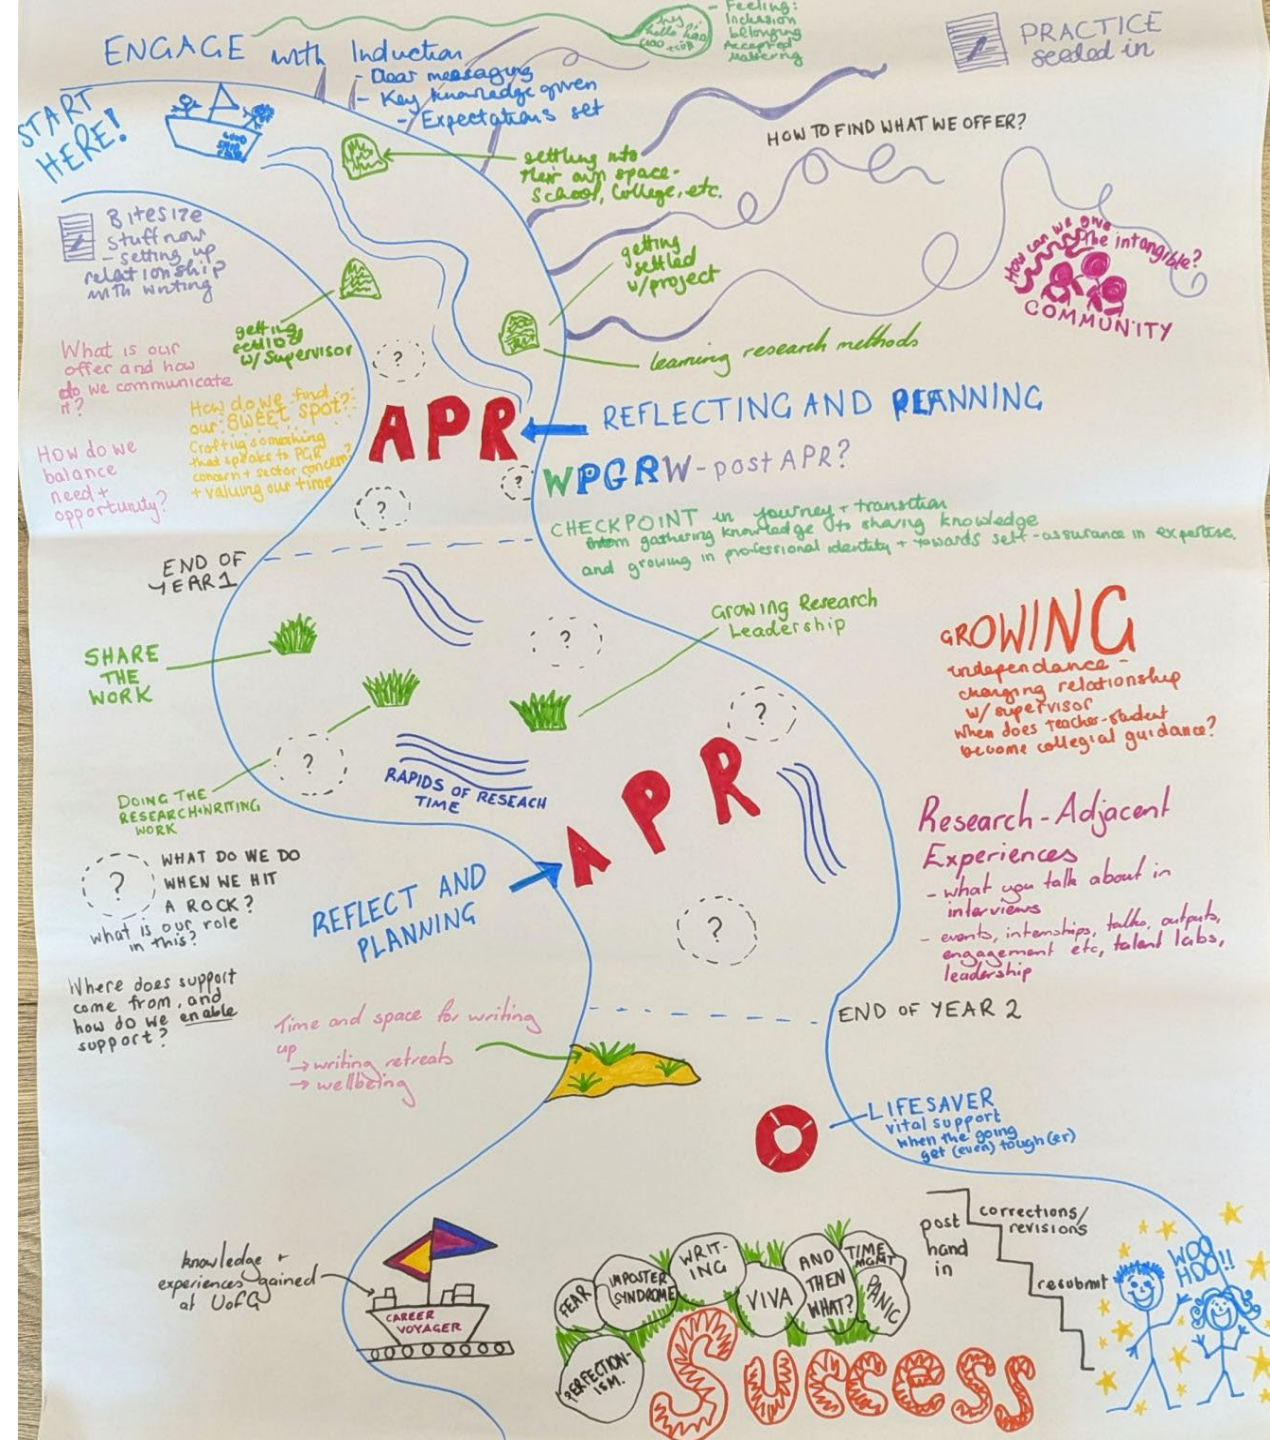 - Feeling:
Inclusion
belonging
Accepted
Mattering
ENGAGE with Induction
- Clear messaging
- Key knowledge given
- Expectations set
PRACTICE
seeded in
START
HERE!
GOOD
SHIP
PGR
HOW TO FIND WHAT WE OFFER?
settling into
their own space -
School, College, etc.
Bitesize
stuff now
- setting up
relationship
with writing
getting
settled
w/project
How can we give the intangible?
COMMUNITY
getting
settled
w/Supervisor
learning research methods
What is our
offer and how
do we communicate
it?
?
How do we find
our SWEET SPOT?
Crafting something
that speaks to PGR
concern + sector concern?
+ valuing our time
APR
REFLECTING AND PLANNING
How do we
balance
need +
opportunity?
WPGRW - post APR?
?
?
CHECKPOINT in journey + transition
from gathering knowledge to sharing knowledge
and growing in professional identity + towards self-assurance in expertise
END OF
YEAR 1
Growing Research
Leadership
?
SHARE
THE
WORK
GROWING
independance -
changing relationship
w/ supervisor
When does teacher-student
become collegial guidance?
?
?
RAPIDS OF RESEACH
TIME
APR
DOING THE
RESEARCH+WRITING
WORK
Research-Adjacent
Experiences
- what you talk about in
interviews
- events, internships, talks, outputs,
engagement etc, talent labs,
leadership
?
WHAT DO WE DO
WHEN WE HIT
A ROCK?
what is our role
in this?
REFLECT AND
PLANNING
?
Where does support
come from, and
how do we enable
support?
END OF YEAR 2
Time and space for writing
up
→ writing retreats
→ wellbeing
LIFESAVER
vital support
when the going
get (even) tough(er)
knowledge +
experiences gained
at UofG
CAREER
VOYAGER
FEAR
IMPOSTER
SYNDROME
WRIT-
ING
VIVA
AND
THEN
WHAT?
TIME
MGMT
PANIC
PERFECTION-
ISM.
SUCCESS
post
hand
in
corrections/
revisions
resubmit
WOO
HOO!!